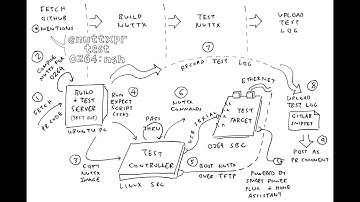 FETCH
GITHUB
@MENTIONS
BUILD
NUTTX
TEST
NUTTX
UPLOAD
TEST
LOG
@nuttxpr
test
oz64:nsh
② COMPILE
NUTTX FOR
OZ64
⑦
RECORD TEST LOG
① FETCH
PR CODE
BUILD
+ TEST
SERVER
(TEST BOT)
UBUNTU PC
④
RUN
EXPECT
SCRIPT
(SSH)
PASS
THRU
⑥
NUTTX
COMMANDS
USB
SERIAL
ETHERNET
TEST
TARGET
OZ64 SBC
⑧
UPLOAD
TEST LOG
GITLAB
SNIPPET
⑨
POST AS
PR COMMENT
③
COPY
NUTTX
IMAGE
TEST
CONTROLLER
LINUX SBC
⑤ BOOT NUTTX
OVER TFTP
POWERED BY
SMART POWER
PLUG + HOME
ASSISTANT